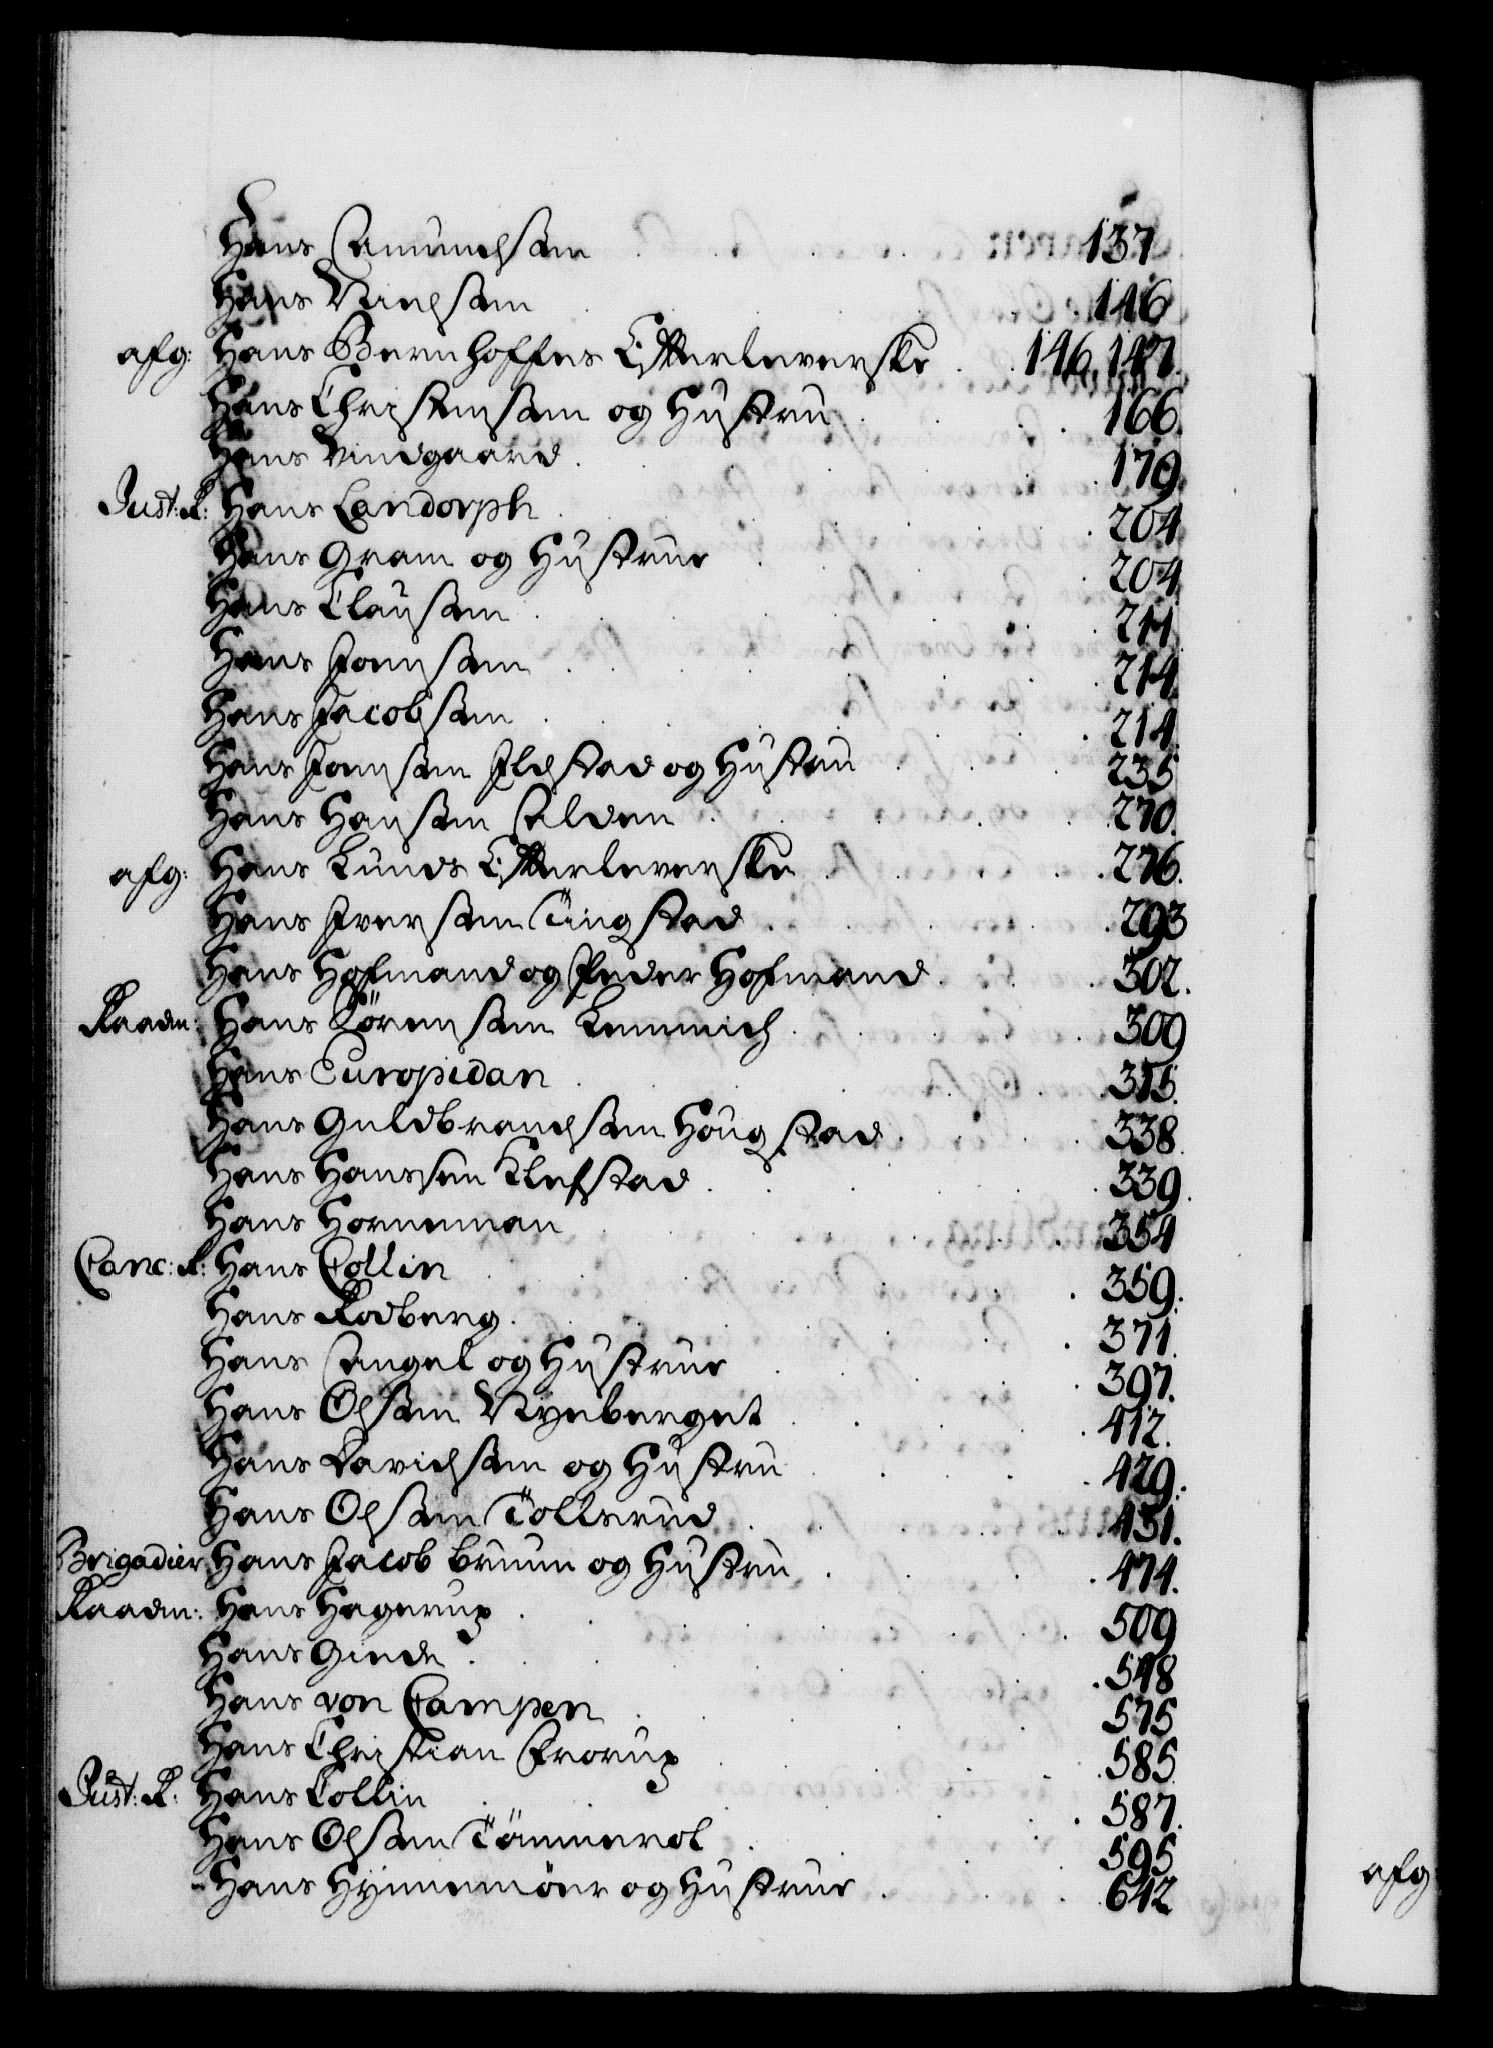 Hans Amundsen 137
Hans Nielsen 146
afg: Hans Bernhoffes Efterleverske 146. 147.
Hans Christensen og Hustru 166.
Hans Vindgaard 179.
Just: R: Hans Landorph 204
Hans Gram og Hustrue 204
Hans Clausen 211
Hans Jensen 214
Hans Jacobsen 214
Hans Jensen Ildstad og Hustru 235
Hans Hansen Alden 270.
afg: Hans Lunds Efterleverske 276.
Hans Iversen Tingstad 293
Hans Hofmand og Peder Hofmand 302.
Raadm: Hans Sörensen Lemmich 309
Hans Europidan 315.
Hans Guldbrandsen Hougstad 338.
Hans Hanssen Klefstad 339.
Hans Horneman 354
Canc: R: Hans Collin 359.
Hans Rodberg 371.
Hans Angel og Hustrue 397.
Hans Olsen Nyeberget 412.
Hans Davidsen og Hustru 429.
Hans Olsen Tollerud 431.
Brigadier Hans Jacob Bruun og Hustru 474.
Raadm: Hans Hagerup 509
Hans Giede 548
Hans von Campen 575
Hans Christian Prorup 585
Just: R: Hans Collin 587.
Hans Olsen Tömmerol 595
Hans Hynnemöer og Hustrue 642
afg